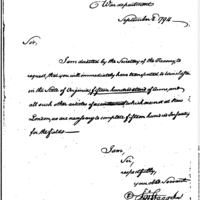 War department
September 8 1794
Sir,
I am directed by the Secretary of the Treasury to
request, that you will immediately have transported to
in the State of Virginia, fifteen hundred stand of arms, and
all such other articles of which are at New
London, as are necessary to complete fifteen hundred Infantry
for the field.
I am,
Sir,
respectfully,
your obdt Servant